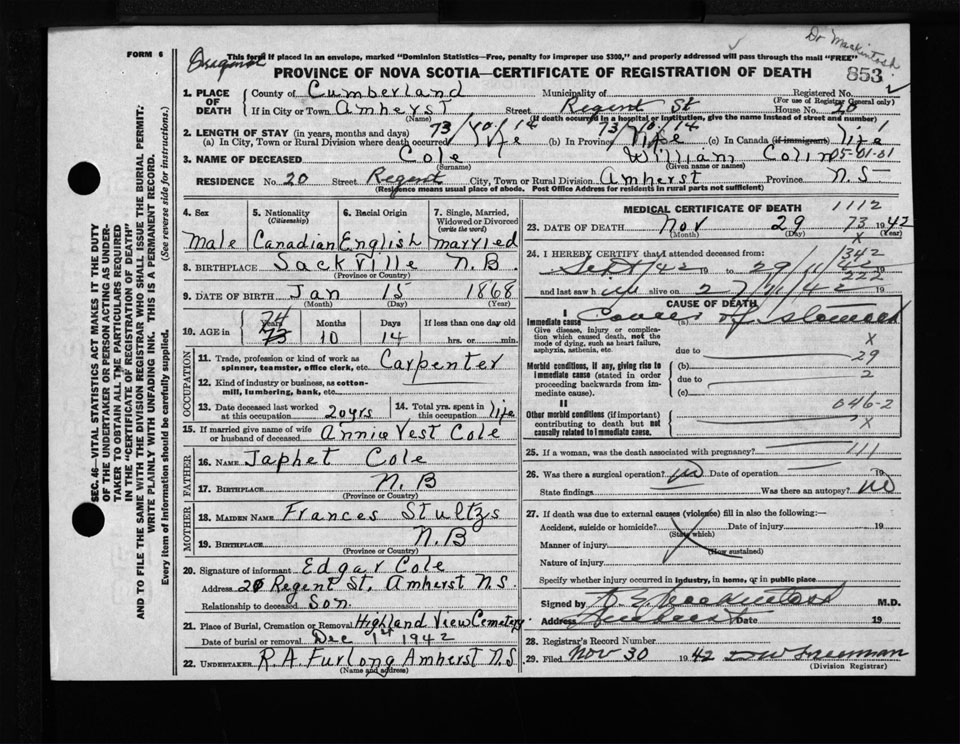 Dr Mackintosh
FORM 6
Original This form if placed in an envelope, marked "Dominion Statistics—Free, penalty for improper use $300," and properly addressed will pass through the mail "FREE"
PROVINCE OF NOVA SCOTIA—CERTIFICATE OF REGISTRATION OF DEATH 853
SEC. 46—VITAL STATISTICS ACT MAKES IT THE DUTY
OF THE UNDERTAKER OR PERSON ACTING AS UNDER-
TAKER TO OBTAIN ALL THE PARTICULARS REQUIRED
IN THE "CERTIFICATE OF REGISTRATION OF DEATH"
AND TO FILE THE SAME WITH THE DIVISION REGISTRAR WHO SHALL ISSUE THE BURIAL PERMIT:
WRITE PLAINLY WITH UNFADING INK. THIS IS A PERMANENT RECORD.
Every item of information should be carefully supplied. (See reverse side for instructions.)
1. PLACE OF DEATH
County of Cumberland Municipality of Registered No.
(For use of Registrar General only)
If in City or Town Amherst Street Regent St House No. 20
(Name) (If death occurred in a hospital or institution, give the name instead of street and number)
2. LENGTH OF STAY (in years, months and days) 73/10/14 73/10/14 1
(a) In City, Town or Rural Division where death occurred life (b) In Province life (c) In Canada (if immigrant) life
3. NAME OF DECEASED Cole William Colin 05-01-01
(Surname) (Given name or names)
RESIDENCE No. 20 Street Regent City, Town or Rural Division Amherst Province N.S
(Residence means usual place of abode. Post Office Address for residents in rural parts not sufficient)
4. Sex
Male
5. Nationality
(Citizenship)
Canadian
6. Racial Origin
English
7. Single, Married,
Widowed or Divorced
(write the word)
married
8. BIRTHPLACE Sackville N.B.
(Province or Country)
9. DATE OF BIRTH Jan 15 1868
(Month) (Day) (Year)
10. AGE in Years Months Days If less than one day old
74
73 10 14 hrs. or min.
OCCUPATION
11. Trade, profession or kind of work as
spinner, teamster, office clerk, etc. Carpenter
12. Kind of industry or business, as cotton-
mill, lumbering, bank, etc.
13. Date deceased last worked
at this occupation 20yrs
14. Total yrs. spent in
this occupation life
15. If married give name of wife
or husband of deceased Annie Vest Cole
FATHER
16. NAME Japhet Cole
17. BIRTHPLACE N.B
(Province or Country)
MOTHER
18. MAIDEN NAME Frances Stultzs
19. BIRTHPLACE N.B
(Province or Country)
20. Signature of informant Edgar Cole
Address 20 Regent St, Amherst N.S.
Relationship to deceased Son.
21. Place of Burial, Cremation or Removal Highland View Cemetery
Date of burial or removal Dec 1st 1942
22. UNDERTAKER R.A. Furlong Amherst N.S
(Name and address)
MEDICAL CERTIFICATE OF DEATH 1112
23. DATE OF DEATH Nov 29 73 1942
(Month) (Day) (Year)
X
24. I HEREBY CERTIFY that I attended deceased from: 342
Sept/42 19 to 29/11/
222
and last saw him alive on 27/11/42 19
CAUSE OF DEATH
I
Immediate cause (a) Cancer of stomach
Give disease, injury or complica-
tion which caused death, not the
mode of dying, such as heart failure,
asphyxia, asthenia, etc.
X
due to 29
Morbid conditions, if any, giving rise to
immediate cause (stated in order
proceeding backwards from im-
mediate cause).
(b)
due to 2
(c)
II 046-2
Other morbid conditions (if important)
contributing to death but not
causally related to immediate cause.
X
25. If a woman, was the death associated with pregnancy? 111
26. Was there a surgical operation? no Date of operation 19
State findings Was there an autopsy? no
27. If death was due to external causes (violence) fill in also the following:—
Accident, suicide or homicide? Date of injury 19
(State which)
Manner of injury
(How sustained)
Nature of injury
Specify whether injury occurred in industry, in home, or in public place
Signed by Mackintosh M.D.
Address Amherst Date 19
28. Registrar's Record Number
29. Filed Nov 30 1942 Freeman
(Division Registrar)